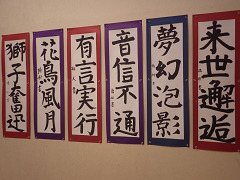 来世邂逅
夢幻泡影
音信不通
有言実行
花鳥風月
獅子奮迅